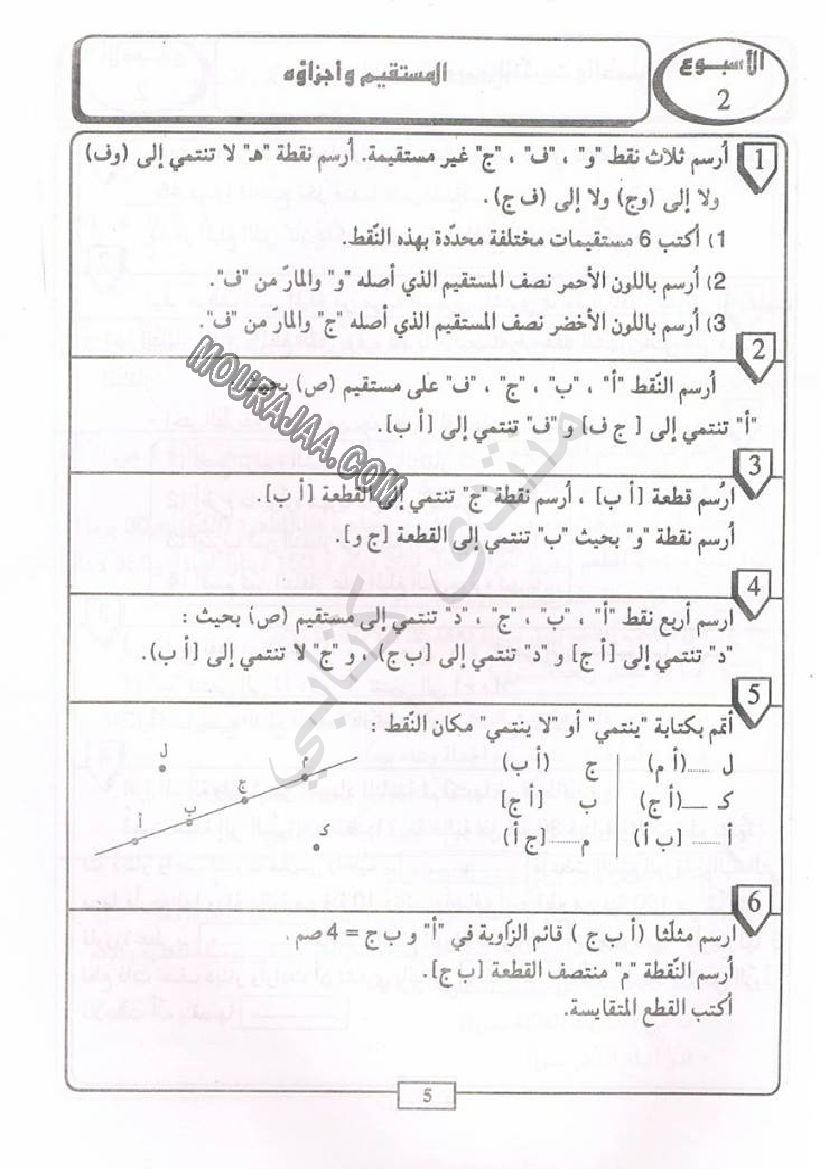 الأسبوع
2
المستقيم وأجزاؤه
1
أرسم ثلاث نقط "و" ، "ف" ، "ج" غير مستقيمة. أرسم نقطة "هـ" لا تنتمي إلى (وف)
ولا إلى (وج) ولا إلى (ف ج) .
1) أكتب 6 مستقيمات مختلفة محدّدة بهذه النّقط.
2) أرسم باللون الأحمر نصف المستقيم الذي أصله "و" والمارّ من "ف".
3) أرسم باللون الأخضر نصف المستقيم الذي أصله "ج" والمارّ من "ف".
2
أرسم النّقط "أ" ، "ب" ، "ج" ، "ف" على مستقيم (ص) بحيث :
"أ" تنتمي إلى [ ج ف] و "ف" تنتمي إلى [أ ب].
3
ارُسم قطعة [أ ب] ، أرسم نقطة "ج" تنتمي إلى القطعة [أ ب].
أرسم نقطة "و" بحيث "ب" تنتمي إلى القطعة [ج و].
4
ارسم أربع نقط "أ" ، "ب" ، "ج" ، "د" تنتمي إلى مستقيم (ص) بحيث :
"د" تنتمي إلى [أ ج] و "د" تنتمي إلى [ب ج) ، و "ج" لا تنتمي إلى [أ ب).
5
أتمم بكتابة "ينتمي" أو "لا ينتمي" مكان النّقط :
ل ......(أ م) ج (أ ب)
كـ ......(أ ج) ب [أ ج]
أ ........ [ب أ) م......[ج أ)
ل
م
ج
ب
أ
كـ
6
ارسم مثلّثا (أ ب ج ) قائم الزّاوية في "أ" و ب ج = 4 صم .
أرسم النّقطة "م" منتصف القطعة [ب ج].
أكتب القطع المتقايسة.
5
MOURAJAA.COM
منتدى كتابي